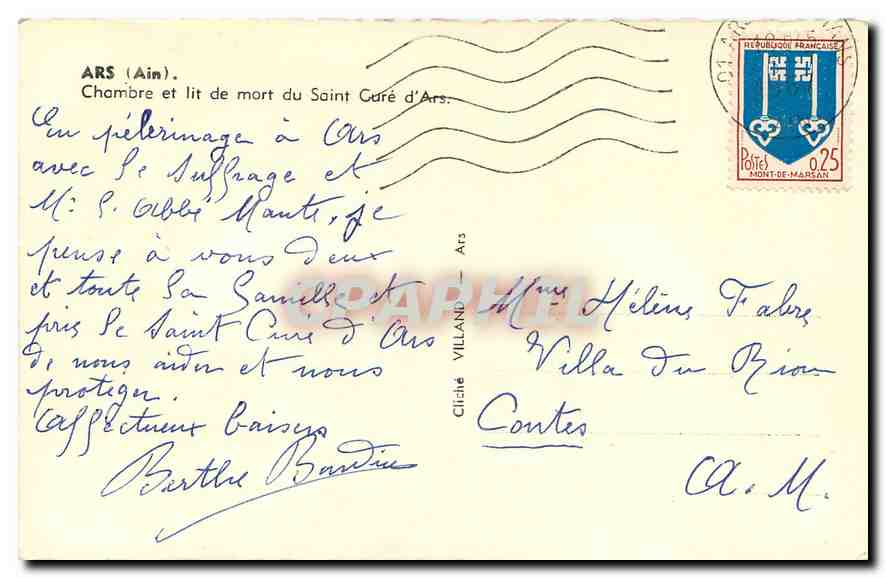 ARS (Ain).
Chambre et lit de mort du Saint Curé d'Ars.
En pélerinage à Ars
avec le suffrage et
Mr l'Abbé Mante, je
pense à vous deux
et toute la famille et
prie le Saint Curé d'Ars
de nous aider et nous
proteger.
Affectueux baisers
Berthe
Cliché VILLAND - Ars
REPUBLIQUE FRANÇAISE
POSTES 0,25
MONT-DE-MARSAN
Mme Hélène Fabre
Villa du Riou
Contes
A. M.
CPAPHIL